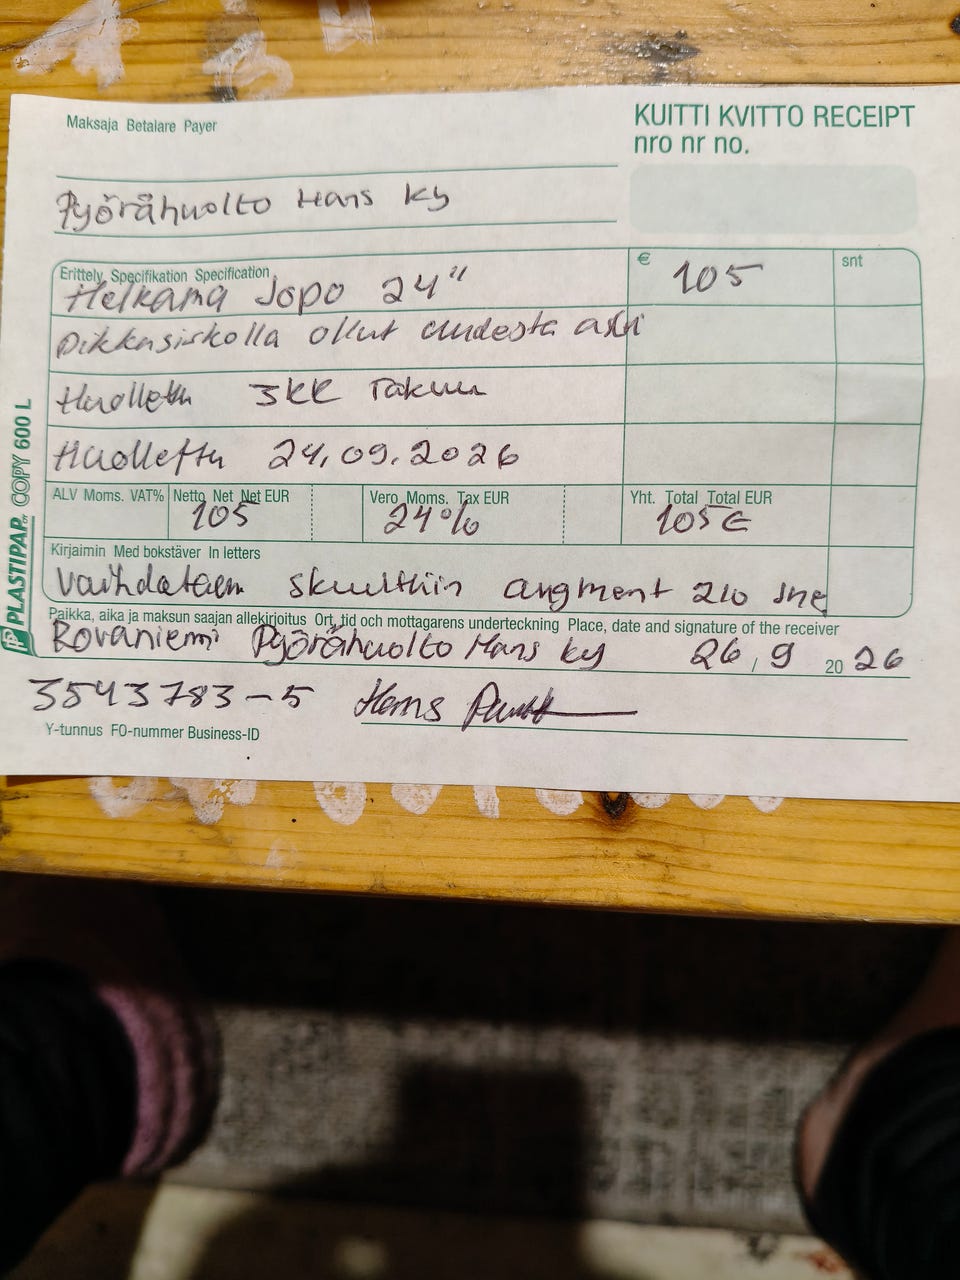 Maksaja Betalare Payer
KUITTI KVITTO RECEIPT
nro nr no.
Pyörähuolto Hans ky
Erittely Specifikation Specification
€ 105 snt
Helkama Jopo 24"
Pikkusiskolla ollut uudesta asti
Huollettu 3KK Takuu
Huollettu 24.09.2026
ALV Moms. VAT% Netto Net Net EUR Vero Moms. Tax EUR Yht. Total Total EUR
105 24% 105€
Kirjaimin Med bokstäver In letters
Vaihdetaan skuuttiin augment 210 sne
Paikka, aika ja maksun saajan allekirjoitus Ort, tid och mottagarens underteckning Place, date and signature of the receiver
Rovaniemi Pyörähuolto Hans ky 26 / 9 20 26
3543783-5 Hans
Y-tunnus FO-nummer Business-ID
PLASTIPAP OY COPY 600 L